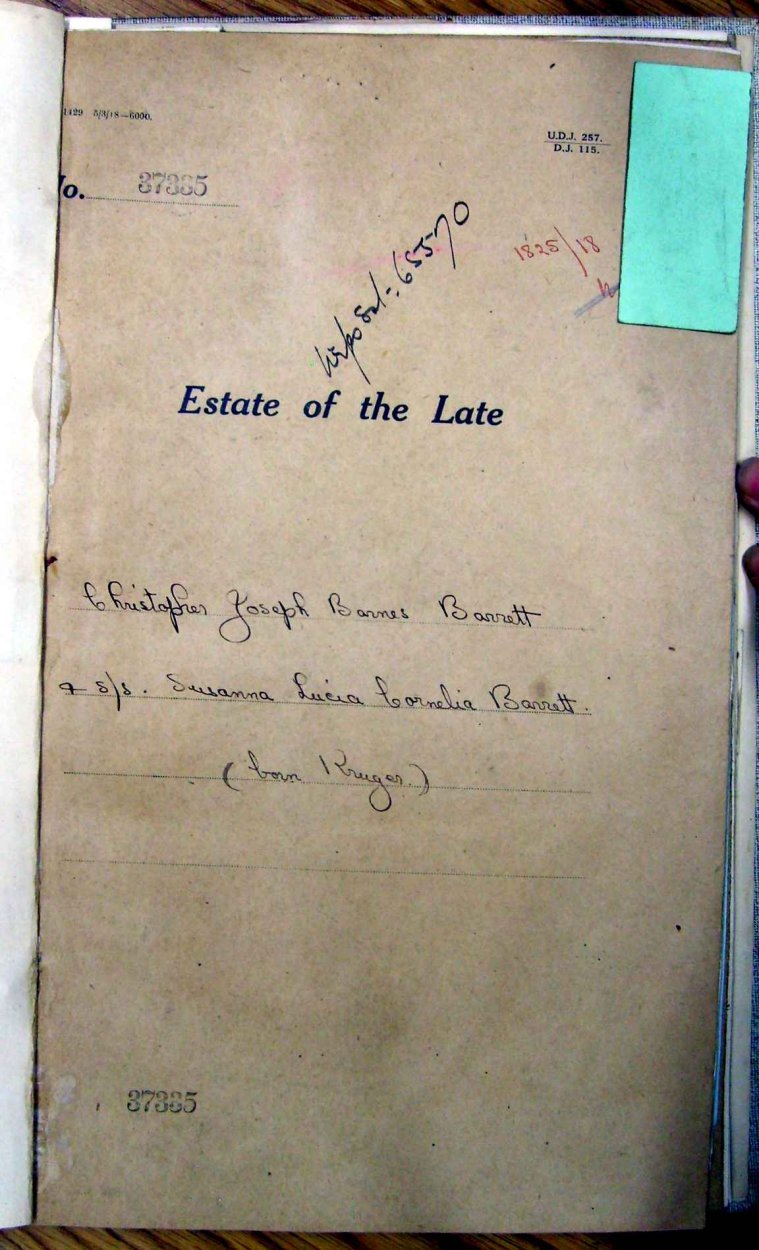 1429 5/3/18—6000.
U.D.J. 257.
D.J. 115.
No. 37385
65570
1825/18
Estate of the Late
Christopher Joseph Barnes Barrett
& s/s. Susanna Lucia Cornelia Barrett.
(born Kruger.)
37385